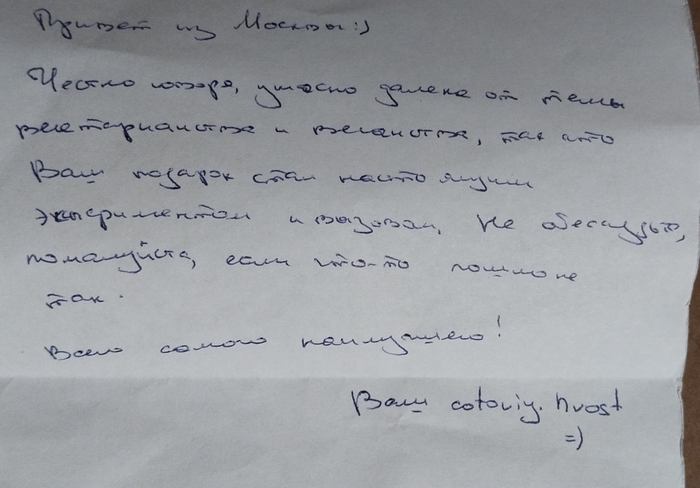 Привет из Москвы:)
Честно говоря, ужасно далека от темы
вегетарианства и веганства, так что
Ваш подарок стал настоящим
экспериментом и вызовом. Не обессудьте,
пожалуйста, если что-то пошло не
так.
Всего самого наилучшего!
Ваш cotoviy.hvost
=)